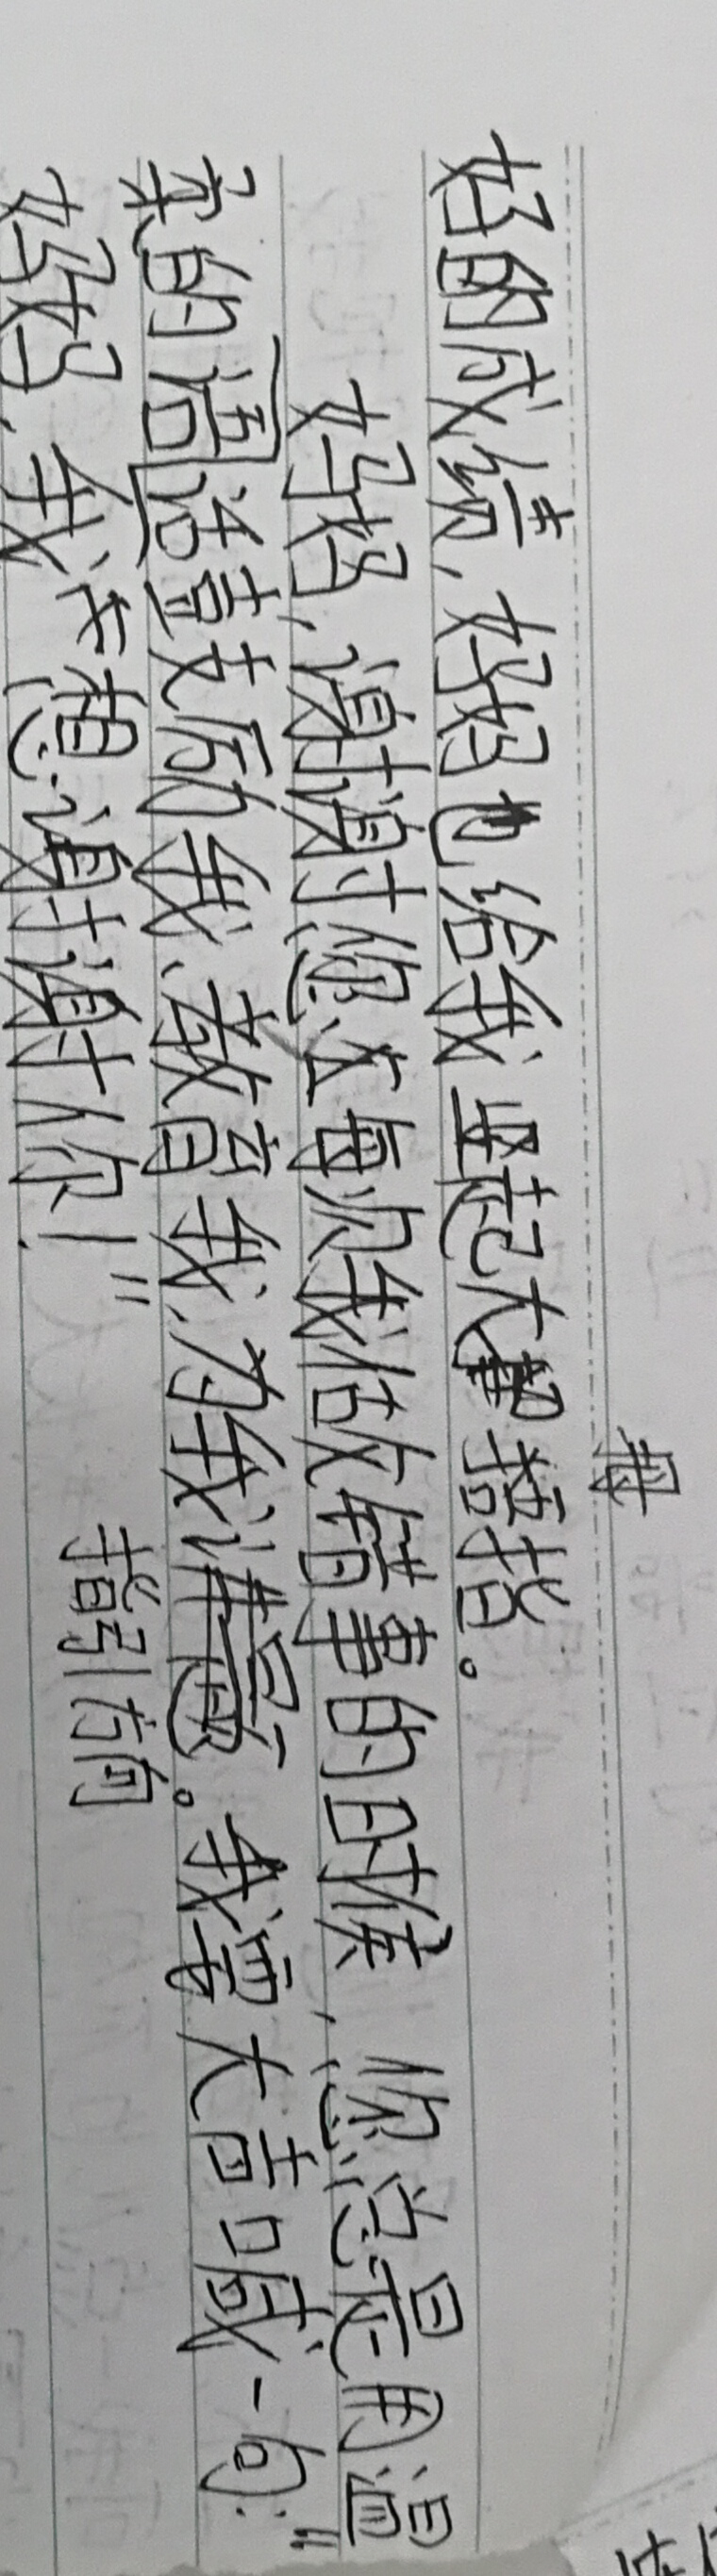 母
好的成绩,妈妈也给我竖起大拇指。
妈妈,谢谢您在每次我做错事的时候,您总是用温
柔的话语鼓励我、教育我,为我。我需大声喊一句:“
指引方向
妈妈,我想谢谢你!”